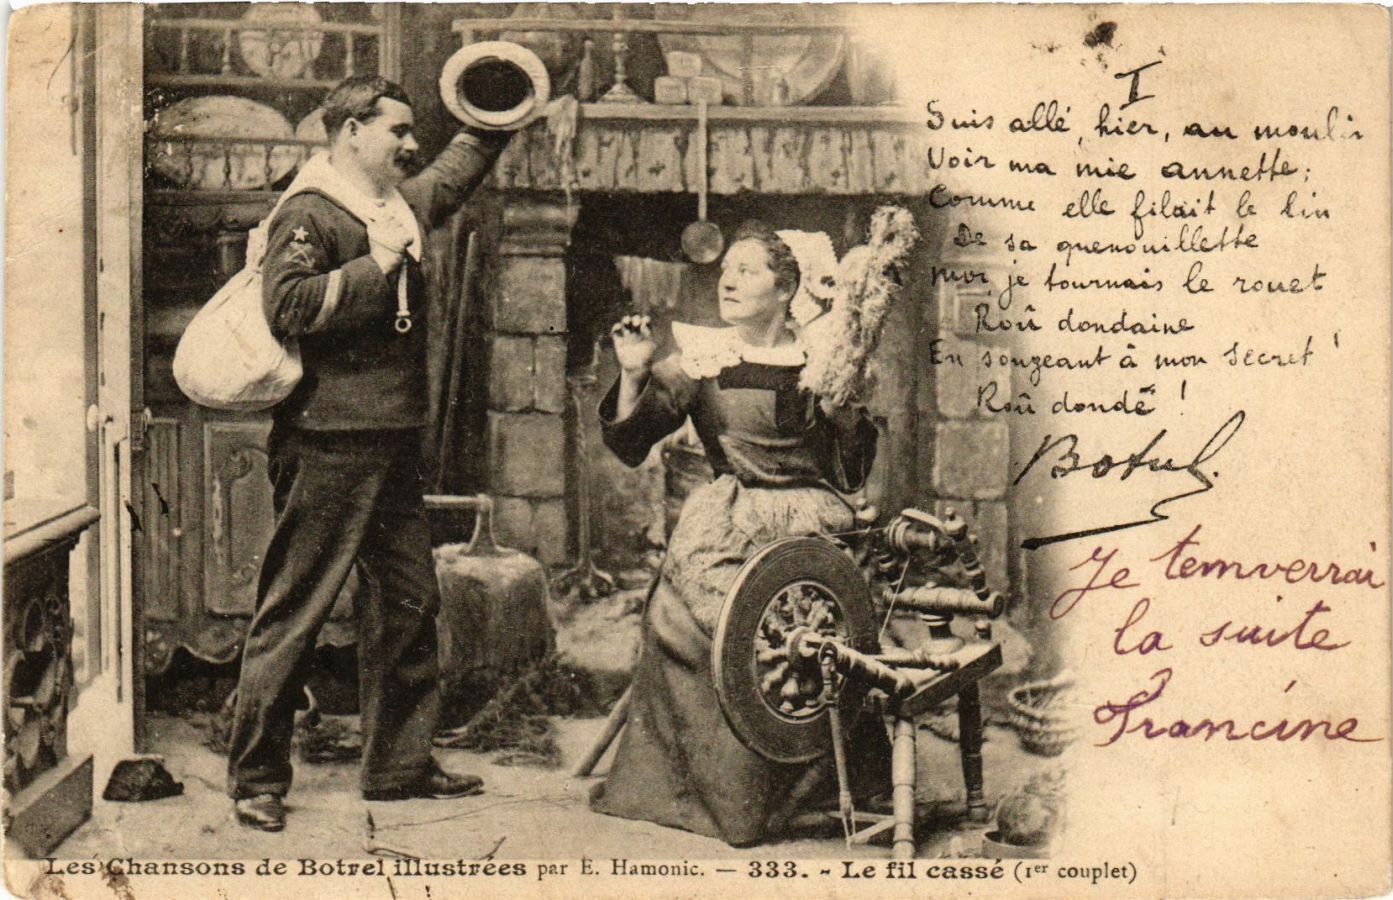 I
Suis allé, hier, au moulin
Voir ma mie annette;
Comme elle filait le lin
De sa quenouillette
Moi, je tournais le rouet
Roû dondaine
En songeant à mon secret !
Roû dondé !
Botrel.
Je temverrai
la suite
Francine
Les Chansons de Botrel illustrées par E. Hamonic. — 333. - Le fil cassé (1er couplet)